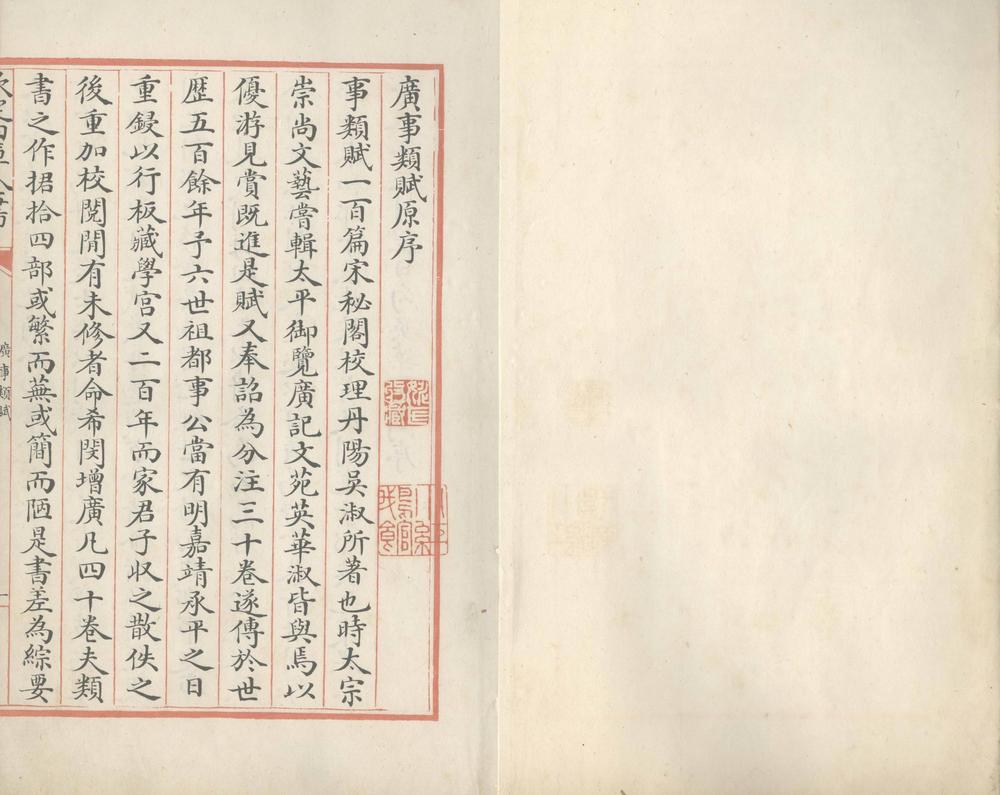 廣事類賦原序
事類賦一百篇宋秘閣校理丹陽吳淑所著也時太宗
崇尚文藝嘗輯太平御覽廣記文苑英華淑皆與焉以
優游見賞既進是賦又奉詔為分注三十卷遂傳於世
歴五百餘年予六世祖都事公當有明嘉靖承平之日
重鋟以行板藏學宫又二百年而家君子収之散佚之
後重加校閱閒有未修者命希閔增廣凡四十卷夫類
書之作捃拾四部或繁而蕪或簡而陋是書差為綜要
廣事類賦